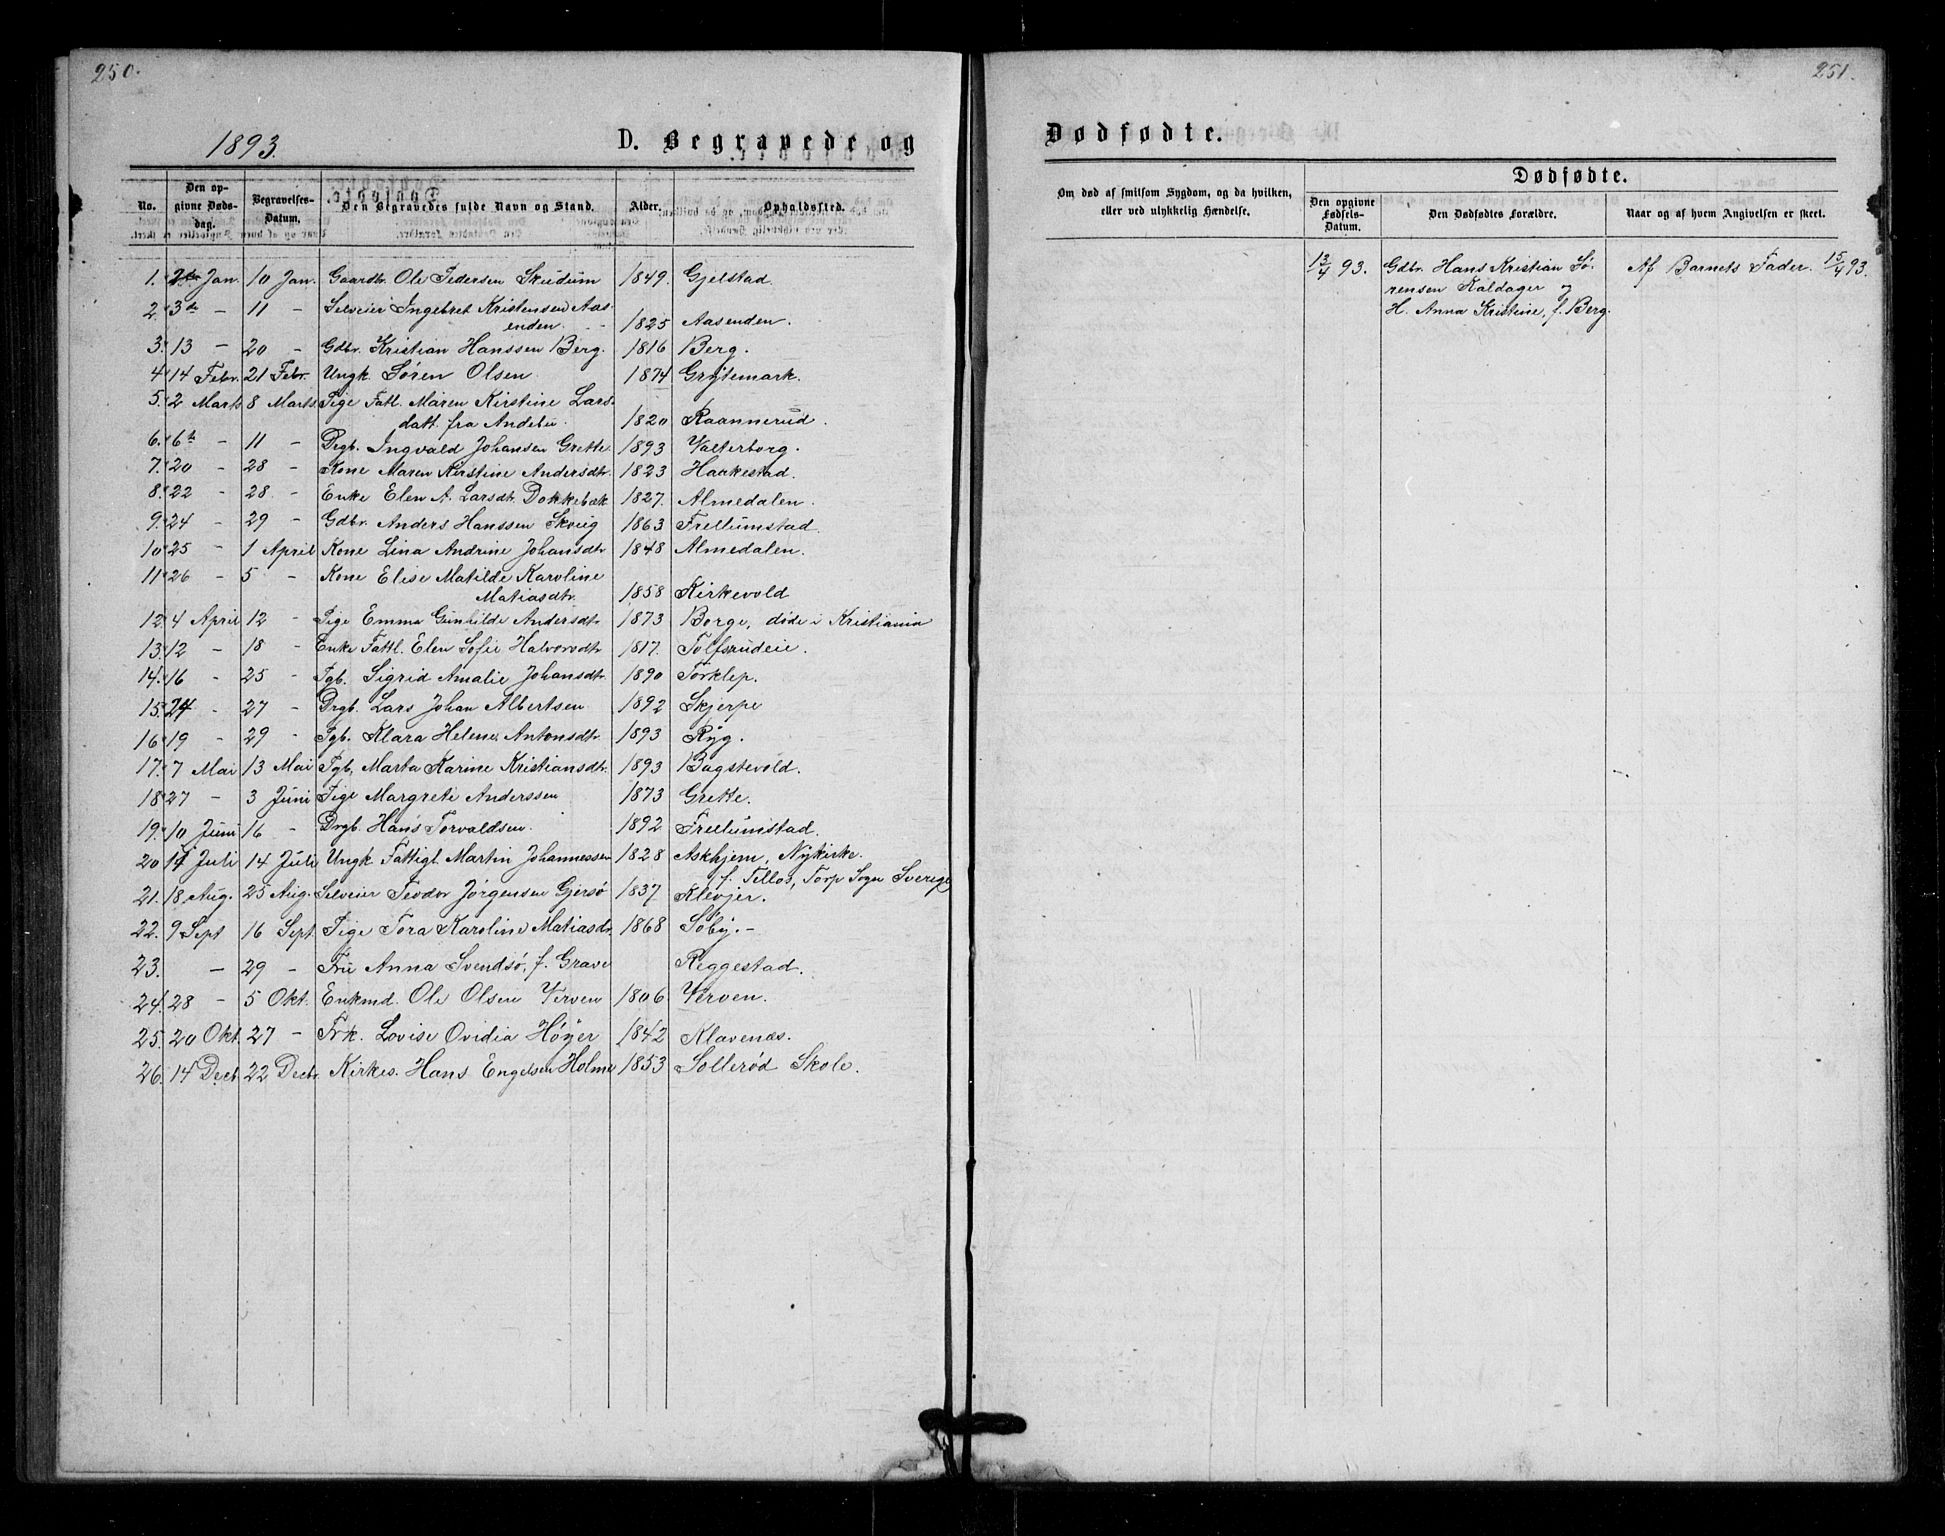 250.
1893.
D. Begravede og
No. | Den opgivne Dødsdag. | Begravelses-Datum. | Den Begravedes fulde Navn og Stand. | Alder. | Opholdssted.
1. Jan. 10 Jan. Gaardbr. Ole Pedersen Skudum 1849. Gjelstad.
2. 3de – 11 – Selveier Ingebret Kristensen Aas-
enden. 1825 Aasenden.
3. 13 – 20 – Gdbr. Kristian Hanssen Berg. 1816 Berg.
4. 14 Febr. 21 Febr. Ungk. Søren Olsen 1874 Grytemark.
5. 2 Marts 8 Marts. Pige Fatl. Maren Kirstine Lars-
datt. fra Andebu. 1820 Raannerud.
6. 6te – 11 – Drgb. Ingvald Johansen Grette. 1893 Valterborg.
7. 20 – 28 – Kone Maren Kirstine Andersdtr. 1823 Haakestad.
8. 22 – 28 – Enke Elen A. Larsdtr. Dokkebæk 1827. Almedalen.
9. 24 – 29 – Gdbr. Anders Hanssen Skoug 1863 Frellumstad.
10. 25 – 1 April Kone Lina Andrine Johansdtr 1848 Almedalen.
11. 26 – 5 – Kone Elise Matilde Karoline
Matiasdtr. 1858 Kirkevold
12. 4 April 12 – Pige Emma Gunhilde Andersdtr. 1873 Borge, døde i Kristiania
13. 12 – 18 – Enke Fattl. Elen Sofie Halvorsdtr 1817. Tolfsrudeie.
14. 16 – 25 – Pgb. Sigrid Amalie Johansdtr 1890 Torklep.
15. 24 – 27 – Drgb. Lars Johan Albertsen 1892 Skjerpe
16. 19 – 29 – Pgb. Klara Helene Antonsdtr 1893 Ryg.
17. 7 Mai 13 Mai Pgb. Marta Karine Kristiansdtr. 1893 Bugstevold.
18. 27 – 3 Juni Pige Margrete Anderssen 1873 Grette.
19. 10 Juni 16 – Drgb. Hans Torvaldsen. 1892 Frellumstad.
20. Juli 14 Juli Ungk. Fattigl. Martin Johannessen 1828 Askhjem, Nykirke.
f. Tellos, Torp Sogn Sverige
21. 18 Aug. 25 Aug. Selveier Teodor Jørgensen Gjersø 1837 Klevjer.
22. 9 Sept 16 Sept. Pige Tora Karoline Matiasdr. 1868 Søby. –
23. – 29 – Fru Anna Svendsø, f. Grave Reggestad.
24. 28 – 5 Okt. Enkmd. Ole Olsen Verven 1806 Verven.
25. 20 Okt. 27 – Frk. Lovise Ovidia Høyer 1842 Klavenæs.
26. 14 Decb. 22 Decbr. Kirkes. Hans Engelsen Holme 1853 Sollerød Skole.
251.
Dødfødte.
Om død af smitsom Sygdom, og da hvilken,
eller ved ulykkelig Hændelse.
Dødfødte.
Den opgivne Fødsels-Datum. | Den Dødfødtes Forældre. | Naar og af hvem Angivelsen er skeet.
13/4 93. Gdbr. Hans Kristian Sø- Af Barnets Fader. 15/4 93.
rensen Kaldager og
H. Anna Kristine, f. Berg.